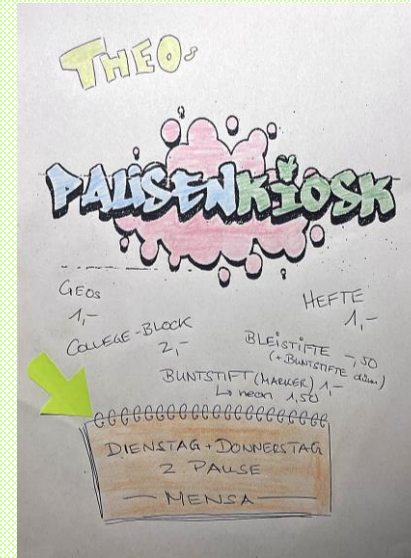 THEOs
PAUSENKIOSK
GEOS
1,-
COLLEGE-BLOCK
2,-
HEFTE
1,-
BLEISTIFTE -,50
(+BUNTSTIFTE dünn)
BUNTSTIFT (MARKER) 1,-
↳ neon 1,50
DIENSTAG + DONNERSTAG
2 PAUSE
MENSA